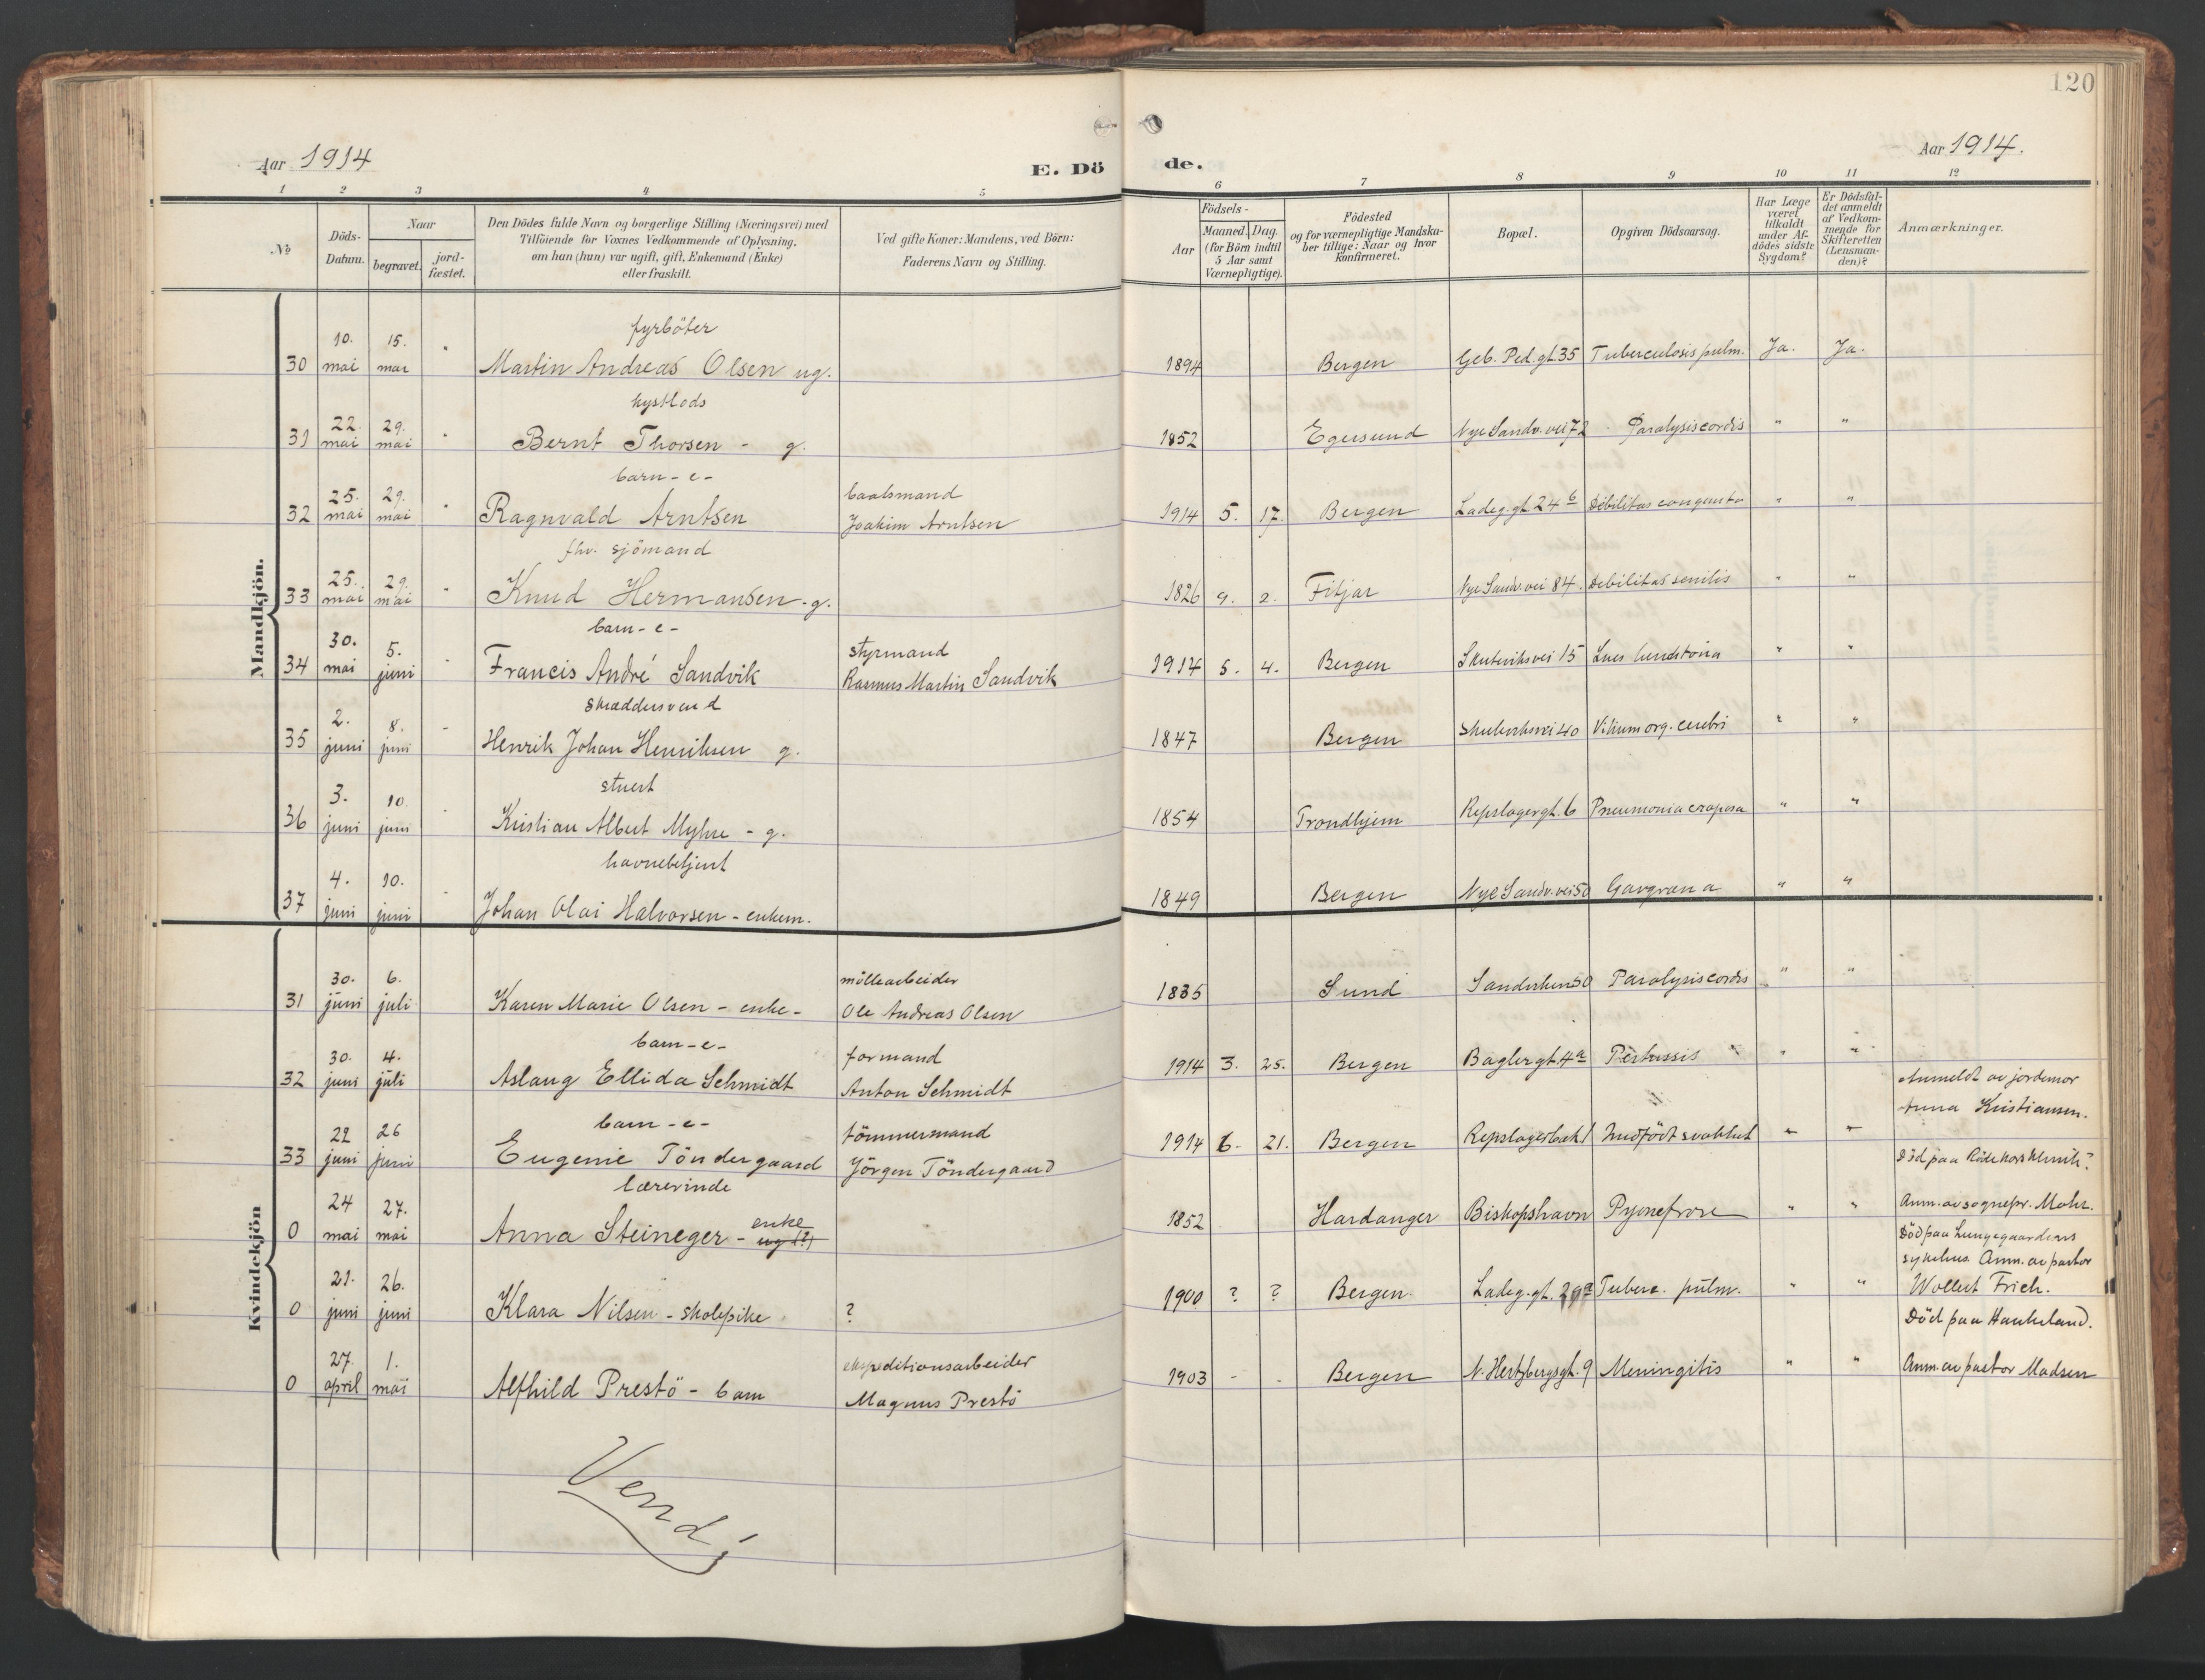 120
Aar 1914
E. Dö
de.
Aar 1914.
1 2 3 4 5 6 7 8 9 10 11 12
No
Döds-
Datum.
Naar
begravet.
jord-
fæstet.
Den Dödes fulde Navn og borgerlige Stilling (Næringsvei) med
Tilföiende for Voxnes Vedkommende af Oplysning,
om han (hun) var ugift, gift, Enkemand (Enke)
eller fraskilt.
Ved gifte Koner: Mandens, ved Börn:
Faderens Navn og Stilling.
Födsels-
Aar
Maaned. Dag.
(for Börn indtil
5 Aar samt
Værnepligtige).
Födested
og for værnepligtige Mandska-
ber tillige: Naar og hvor
Konfirmeret.
Bopæl.
Opgiven Dödsaarsag.
Har Læge
været
tilkaldt
under Af-
dödes sidste
Sygdom?
Er Dödsfal-
det anmeldt
af Vedkom-
mende for
Skifteretten
(Lensman-
den)?
Anmærkninger.
Mandkjön.
fyrböter
10. 15.
30 mai mai " Martin Andreas Olsen ug. 1894 Bergen Geb. Ped. gt. 35 Tuberculosis pulm. Ja. Ja.
kystlods
22. 29.
31 mai mai " Bernt Thorsen - g. 1852 Egersund Nye Sandv. vei 72 Paralysis cordis " "
barn - e -
25. 29. baatsmand
32 mai mai " Ragnvald Arntsen Joakim Arntsen 1914 5. 17. Bergen Ladeg. gt. 24 b Debilitas congenita " "
fhv. sjömand
25. 29.
33 mai mai " Knud Hermansen - g. 1826 9. 2. Fitjar Nye Sandv. vei 84. Debilitas senilis " "
barn - e -
30. 5. styrmand
34 mai juni Francis André Sandvik Rasmus Martin Sandvik 1914 5. 4. Bergen Skuteviksvei 15 Lues " "
skræddersvend
2. 8.
35 juni juni Henrik Johan Henriksen g. 1847 Bergen Skuteviksvei 40 Vitium org. cerebri " "
stuert
3. 10.
36 juni juni Kristian Albert Myhre - g. 1854 Trondhjem Repslagergt. 6 Pneumonia crouposa " "
havnebetjent
4. 10.
37 juni juni Johan Olai Halvorsen - enkem. 1849 Bergen Nye Sandv. vei 50 Gangræna " "
Kvindekjön
30. 6. möllearbeider
31 juni juli Karen Marie Olsen - enke - Ole Andreas Olsen 1835 Sund Sandviken 50 Paralysis cordis " "
barn - e -
30. 4. formand
32 juni juli Aslaug Ellida Schmidt Anton Schmidt 1914 3. 25. Bergen Baglergt. 4a Pertussis " "
Anmeldt av jordemor
Anna Kristiansen.
barn - e -
22 26 tömmermand
33 juni juni Eugenie Töndergaard Jörgen Töndergaard 1914 6. 21. Bergen Repslagerbak. 1 Medfödt svakhet " "
Död paa Rödekors klinik.
lærerinde
24 27. enke
0 mai mai Anna Steineger - ug (?) 1852 Hardanger Bishopshavn Pyonefrose " " Anm. av sognepr. Mohr.
Död paa Lungegaardens
sykehus. Anm. av pastor
21. 26. Wollert Frich.
0 juni juni Klara Nilsen - skolepike ? 1900 ? ? Bergen Ladeg. gt. 29a Tuberc. pulm. " "
Död paa Haukeland.
27. 1. ekspeditionsarbeider
0 april mai Alfhild Prestö - barn Magnus Prestö 1903 - - Bergen N. Hertzbergsgt. 9 Meningitis " " Anm. av pastor Madsen
Vend!